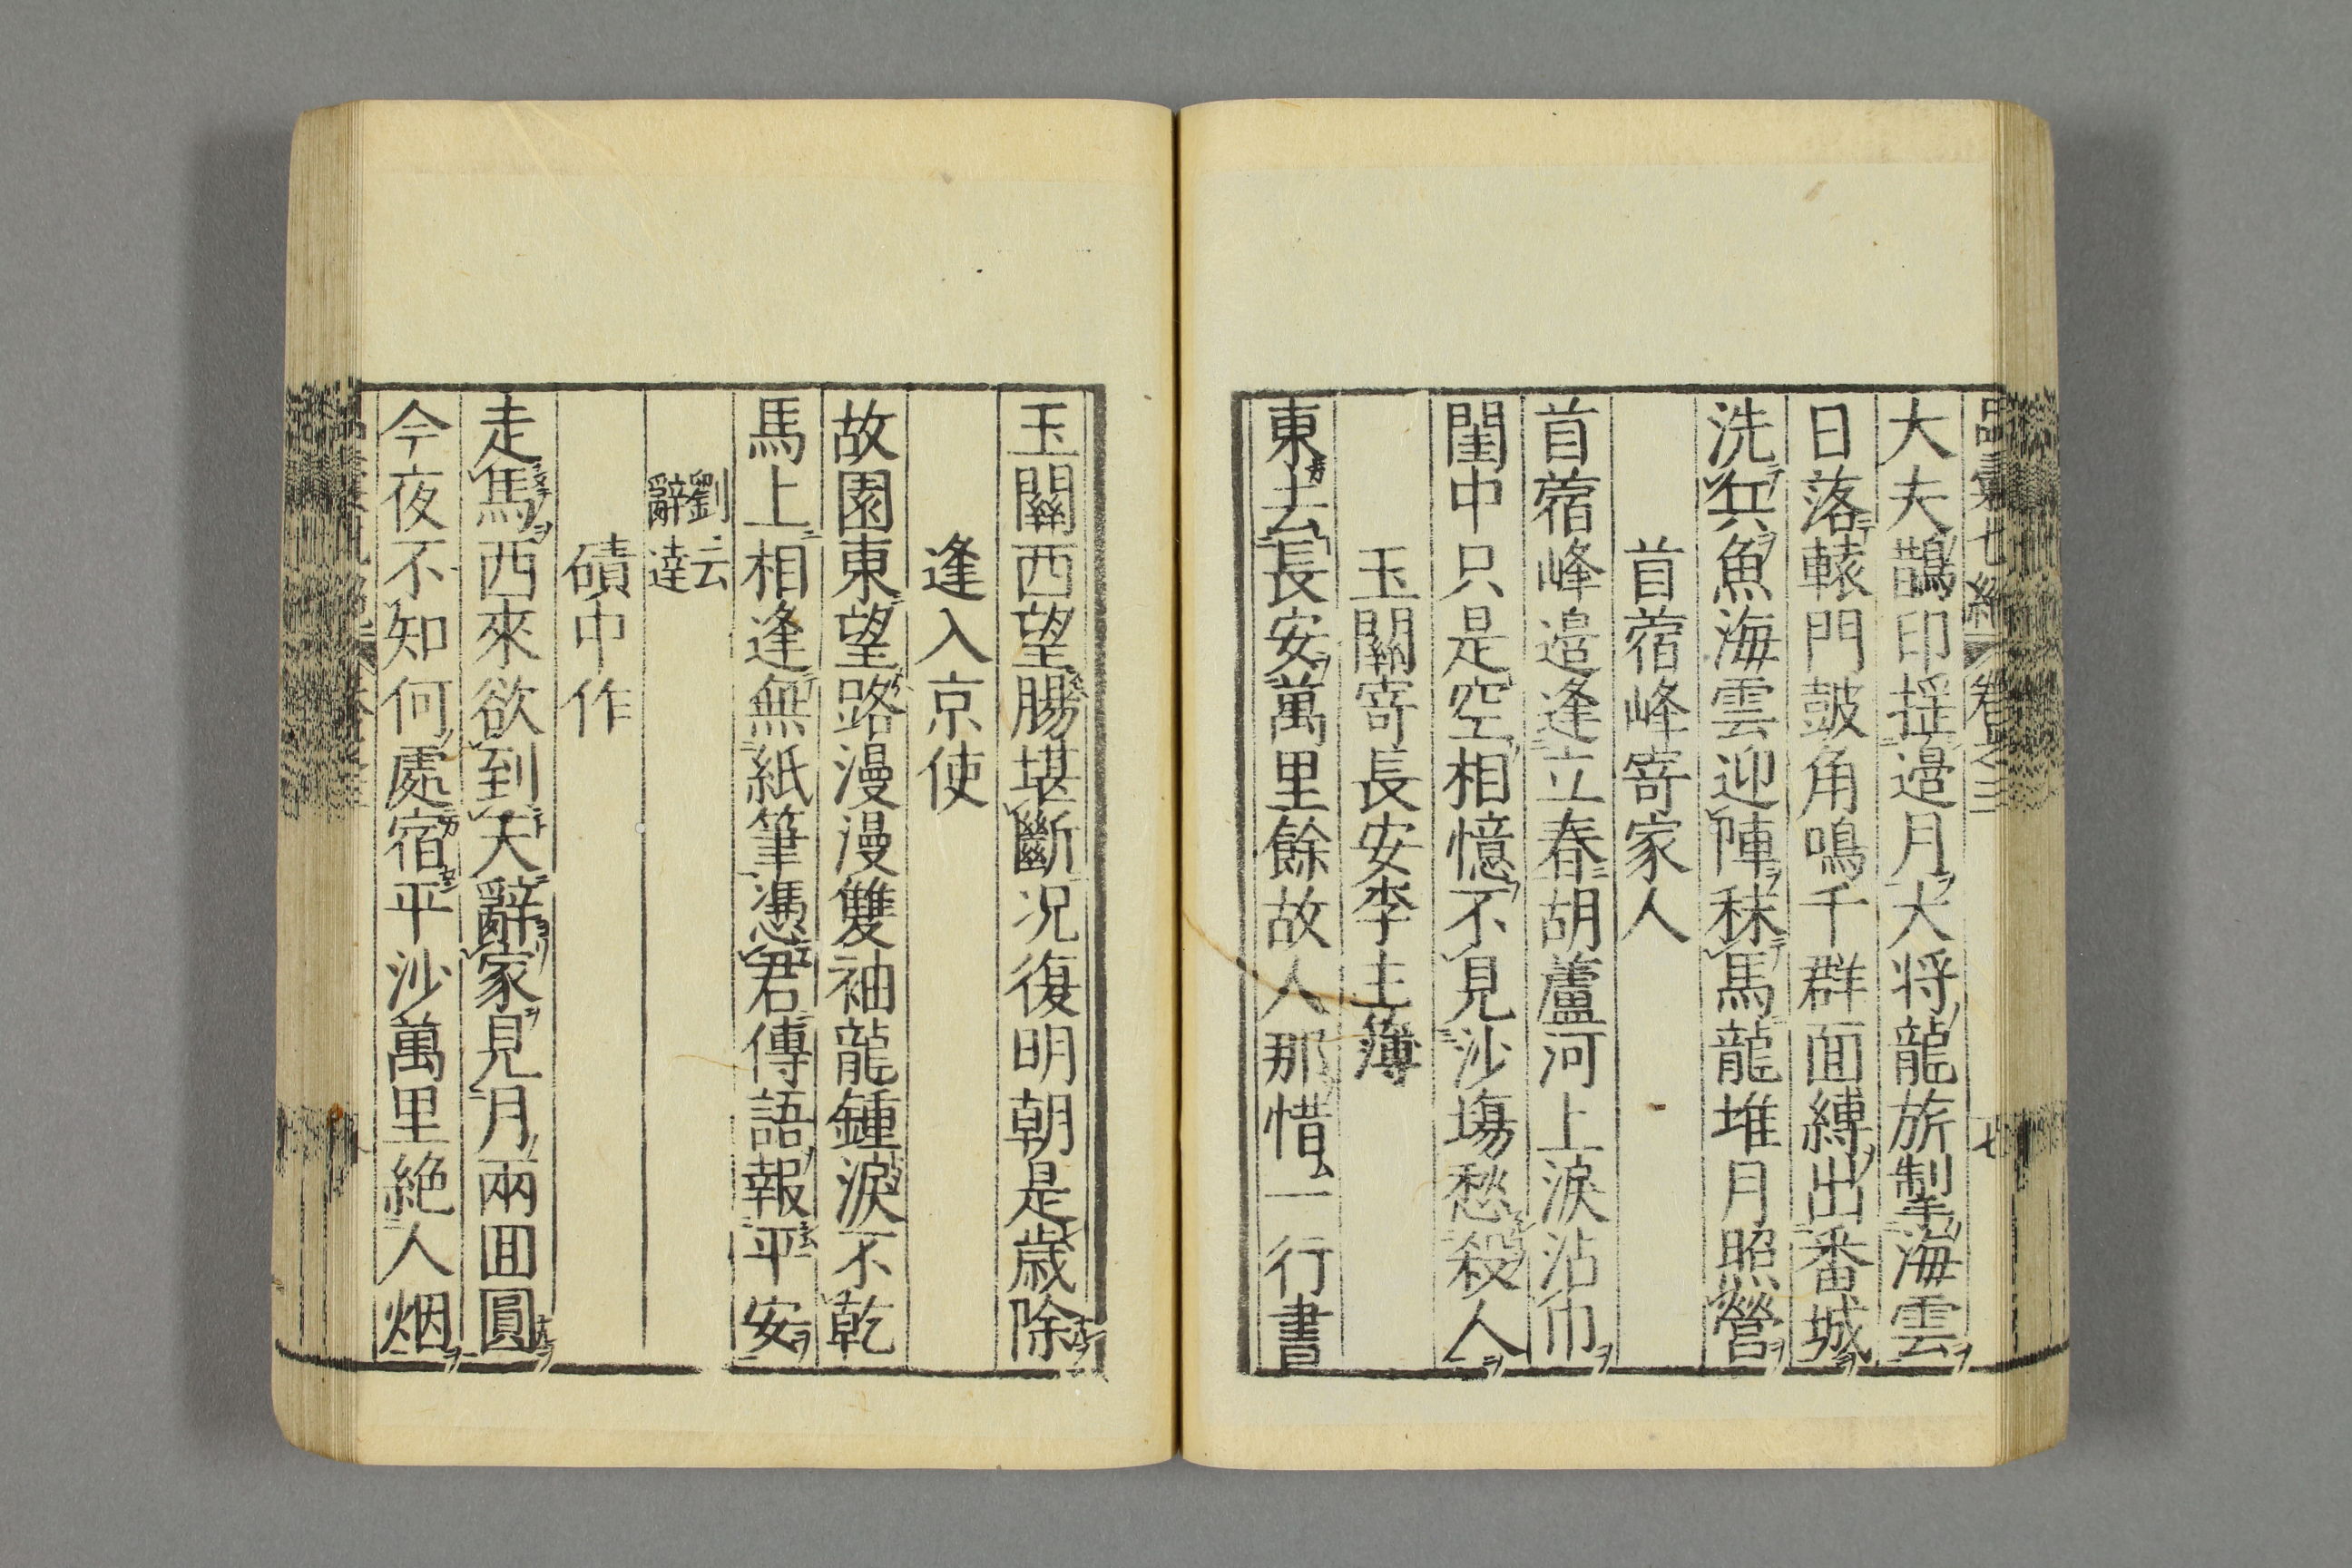 品彙七絶 卷之三 七
大夫鵲印揺邉月大将龍旂掣海雲
日落轅門皷角鳴千群面縛出番城
洗兵魚海雲迎陣秣馬龍堆月照營
苜蓿峰寄家人
苜蓿峰邉逢立春胡蘆河上淚沾巾
閨中只是空相憶不見沙塲愁殺人
玉關寄長安李主薄
東去長安萬里餘故人那惜一行書
玉關西望腸堪斷况復明朝是歳除
逢入京使
故園東望路漫漫雙袖龍鍾淚不乾
馬上相逢無紙筆憑君傳語報平安
劉云
辭達
磧中作
走馬西來欲到天辭家見月兩回圓
今夜不知何處宿平沙萬里絶人烟